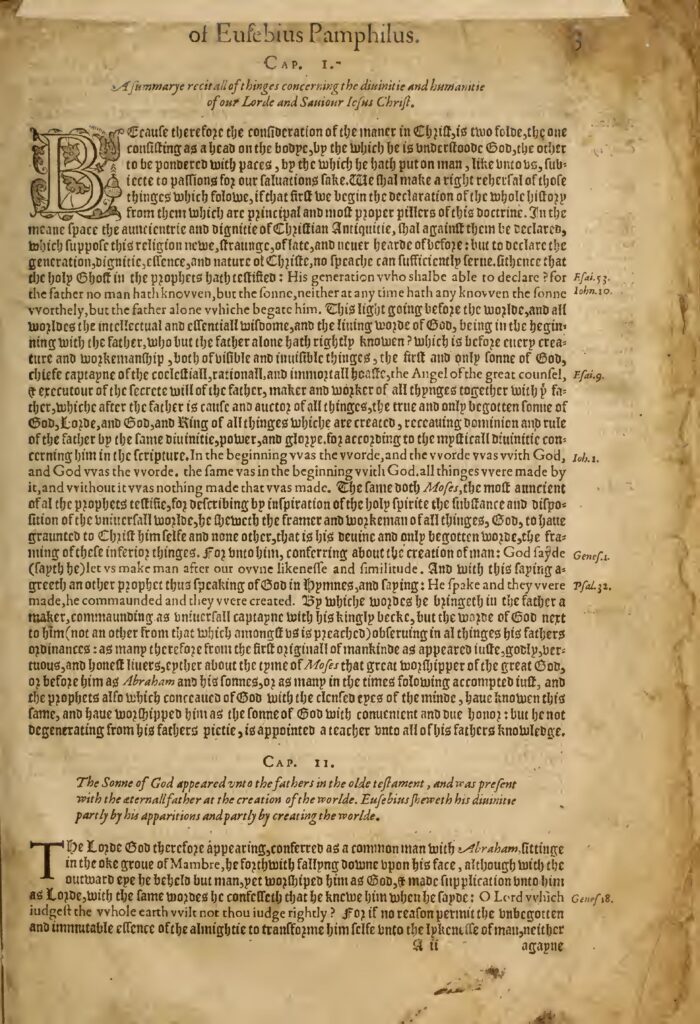 of Eusebius Pamphilus.
3
CAP. I.
A summarye recitall of thinges concerning the diuinitie and humanitie
of our Lorde and Sauiour Iesus Christ.
BEcause therefore the consideration of the maner in Christ, is two folde, the one
consisting as a head on the bodye, by the which he is vnderstoode God, the other
to be pondered with paces, by the which he hath put on man, like vnto vs, sub-
iecte to passions for our saluations sake. We shal make a right rehersal of those
thinges which folowe, if that first we begin the declaration of the whole history
from them which are principal and most proper pillers of this doctrine. In the
meane space the auncientrie and dignitie of Christian Antiquitie, shal against them be declared,
which suppose this religion newe, straunge, of late, and neuer hearde of before: but to declare the
generation, dignitie, essence, and nature of Christe, no speache can sufficiently serue. sithence that
the holy Ghost in the prophets hath testified: His generation vvho shalbe able to declare? for
Esai. 53.
the father no man hath knovven, but the sonne, neither at any time hath any knovven the sonne
Iohn. 10.
vvorthely, but the father alone vvhiche begate him. This light going before the worlde, and all
worldes the intellectual and essentiall wisdome, and the liuing worde of God, being in the begin-
ning with the father, who but the father alone hath rightly knowen? which is before euery crea-
ture and workemanship, both of visible and inuisible thinges, the first and only sonne of God,
chiefe captayne of the coelestiall, rationall, and immortall hoaste, the Angel of the great counsel,
Esai. 9.
& executour of the secrete will of the father, maker and worker of all thynges together with þ fa-
ther, whiche after the father is cause and auctor of all thinges, the true and only begotten sonne of
God, Lorde, and God, and King of all thinges whiche are created, receauing dominion and rule
of the father by the same diuinitie, power, and glorye. for according to the mysticall diuinitie con-
cerning him in the scripture. In the beginning vvas the vvorde, and the vvorde vvas vvith God,
Ioh. 1.
and God vvas the vvorde. the same vas in the beginning vvith God. all thinges vvere made by
it, and vvithout it vvas nothing made that vvas made. The same doth Moses, the most auncient
of al the prophets testifie, for describing by inspiration of the holy spirite the substance and dispo-
sition of the vniuersall worlde, he sheweth the framer and workeman of all thinges, God, to haue
graunted to Christ him selfe and none other, that is his deuine and only begotten worde, the fra-
ming of these inferior thinges. For vnto him, conferring about the creation of man: God sayde
Genes. 1.
(sayth he) let vs make man after our ovvne likenesse and similitude. And with this saying a-
greeth an other prophet thus speaking of God in Hymnes, and saying: He spake and they vvere
Psal. 32.
made, he commaunded and they vvere created. By whiche wordes he bringeth in the father a
maker, commaunding as vniuersall captayne with his kingly becke, but the worde of God next
to him (not an other from that which amongst vs is preached) obseruing in al thinges his fathers
ordinances: as many therefore from the first originall of mankinde as appeared iuste, godly, ver-
tuous, and honest liuers, eyther about the tyme of Moses that great worshipper of the great God,
or before him as Abraham and his sonnes, or as many in the times folowing accompted iust, and
the prophets also which conceaued of God with the clensed eyes of the minde, haue knowen this
same, and haue worshipped him as the sonne of God with conuenient and due honor: but he not
degenerating from his fathers pietie, is appointed a teacher vnto all of his fathers knowledge.
CAP. II.
The Sonne of God appeared vnto the fathers in the olde testament, and was present
with the æternall father at the creation of the worlde. Eusebius sheweth his diuinitie
partly by his apparitions and partly by creating the worlde.
THe Lorde God therefore appearing, conferred as a common man with Abraham. sittinge
in the oke groue of Mambre, he forthwith fallyng downe vpon his face, although with the
outward eye he beheld but man, yet worshiped him as God, & made supplication vnto him
as Lorde, with the same wordes he confesseth that he knewe him when he sayde: O Lord vvhich
Genes. 18.
iudgest the vvhole earth vvilt not thou iudge rightly? For if no reason permit the vnbegotten
and immutable essence of the almightie to transforme him selfe vnto the lykenesse of man, neither
A ii
agayne